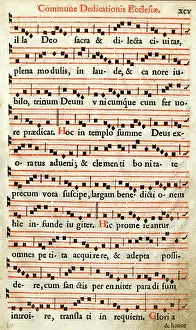 Commune Dedicationis Ecclesiæ. xcv
illa Deo sacra & dilecta ciuitas,
plena modulis, in laude, & canore iu-
bilo, trinum Deum vnicumque cum feruo-
re prædicat. Hoc in templo summe Deus ex-
oratus adueni; & clementi bonitate
precum vota suscipe, largam benedictionem
hic infunde iugiter. Hic promereantur
omnes petita acquirere, & adepta possi-
dere, cum sanctis perenniter paradisum
introire, translati in requiem. Gloria
& honor